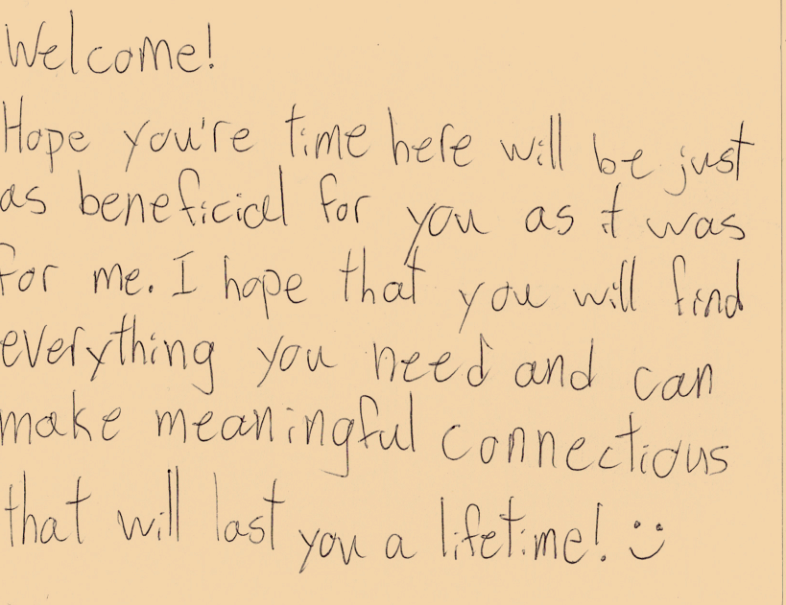 Welcome!
Hope you're time here will be just
as beneficial for you as it was
for me. I hope that you will find
everything you need and can
make meaningful connections
that will last you a lifetime! :)